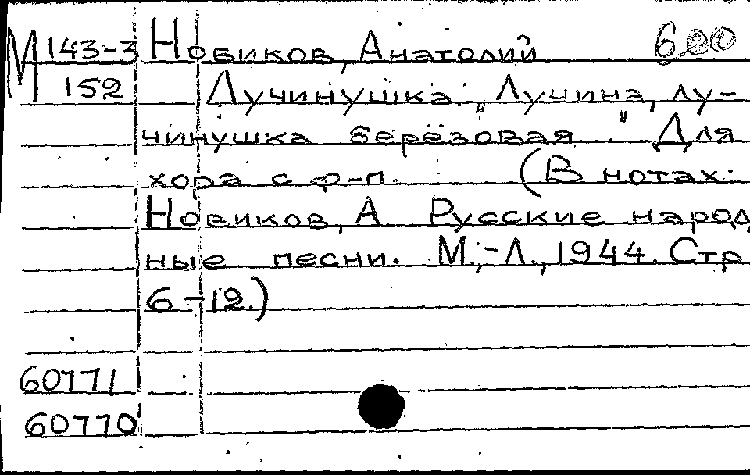 М 143-3 Новиков, Анатолий 600
152 Лучинушка. "Лучина, лу-
чинушка берёзовая". Для
хора с ф-п. (В нотах:
Новиков, А. Русские народ
ные песни. М.,-Л., 1944. Стр
6-12.)
60771
60770